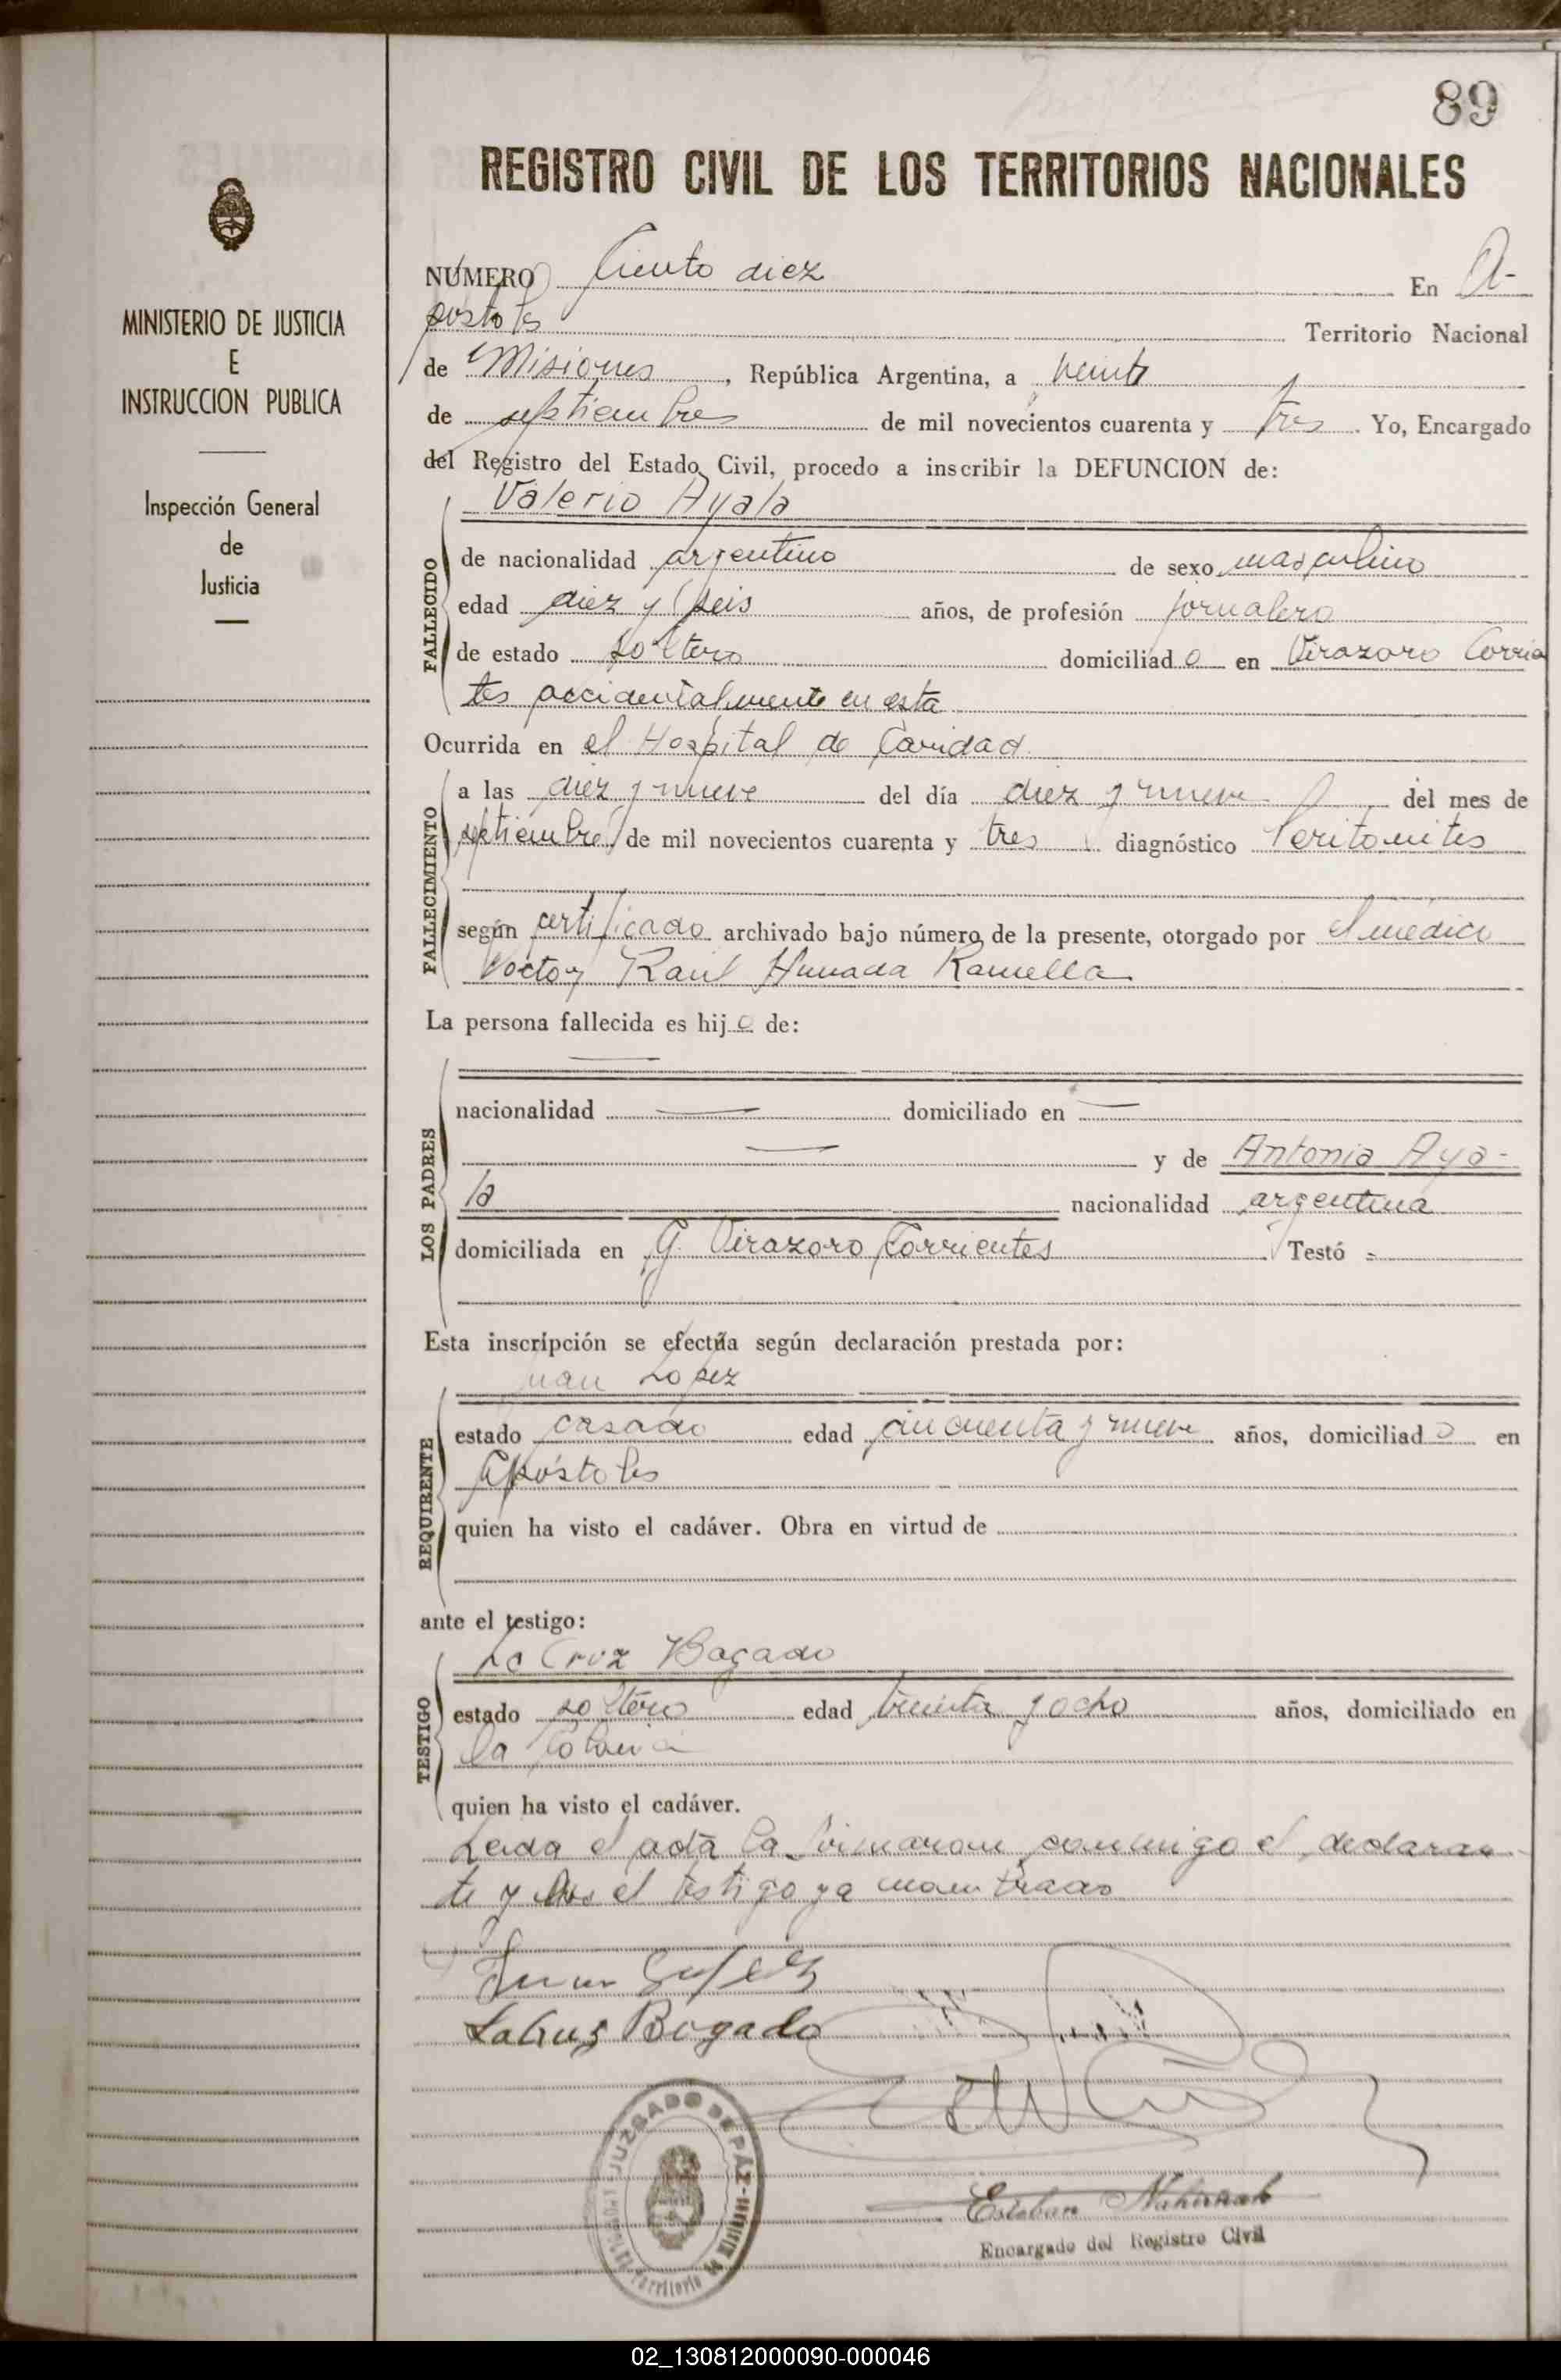 89
REGISTRO CIVIL DE LOS TERRITORIOS NACIONALES
MINISTERIO DE JUSTICIA
E
INSTRUCCION PUBLICA
Inspección General
de
Justicia
NÚMERO Ciento diez En A-
póstoles Territorio Nacional
de Misiones, República Argentina, a veinte
de septiembre de mil novecientos cuarenta y tres. Yo, Encargado
del Registro del Estado Civil, procedo a inscribir la DEFUNCION de:
Valerio Ayala
FALLECIDO
de nacionalidad argentino de sexo masculino
edad diez y seis años, de profesión jornalero
de estado soltero domiciliado en Virazoro Corrien
tes accidentalmente en esta
Ocurrida en el Hospital de Caridad
FALLECIMIENTO
a las diez y nueve del día diez y nueve del mes de
septiembre de mil novecientos cuarenta y tres diagnóstico Peritonites
según certificado archivado bajo número de la presente, otorgado por el médico
Doctor Raúl Ramella
La persona fallecida es hijo de:
LOS PADRES
nacionalidad — domiciliado en —
— y de Antonia Aya-
la nacionalidad argentina
domiciliada en G. Virazoro Corrientes Testó =
Esta inscripción se efectúa según declaración prestada por:
Juan Lopez
REQUIRENTE
estado casado edad cincuenta y nueve años, domiciliado en
Apóstoles
quien ha visto el cadáver. Obra en virtud de
ante el testigo:
La Cruz Bogado
TESTIGO
estado soltero edad treinta y ocho años, domiciliado en
la Colonia
quien ha visto el cadáver.
Leida el acta la firmaron conmigo el declaran-
te y el testigo ya
Juan
LaCruz Bogado
JUZGADO DE PAZ
Territorio
Esteban
Encargado del Registro Civil
02_130812000090-000046